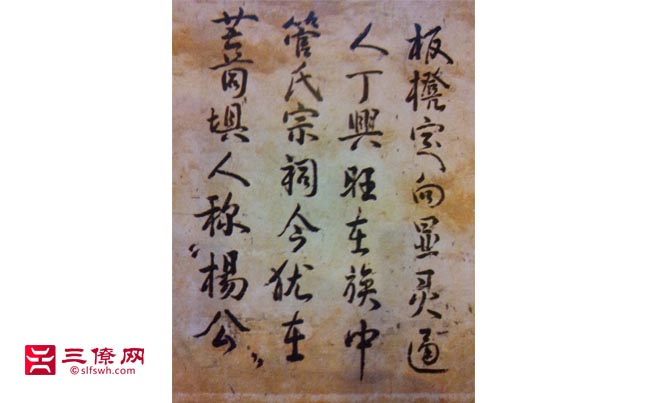 板櫈定向显灵通
人丁興旺在族中
管氏宗祠今犹在
埧人称“楊公”
三僚网
©slfswh.com